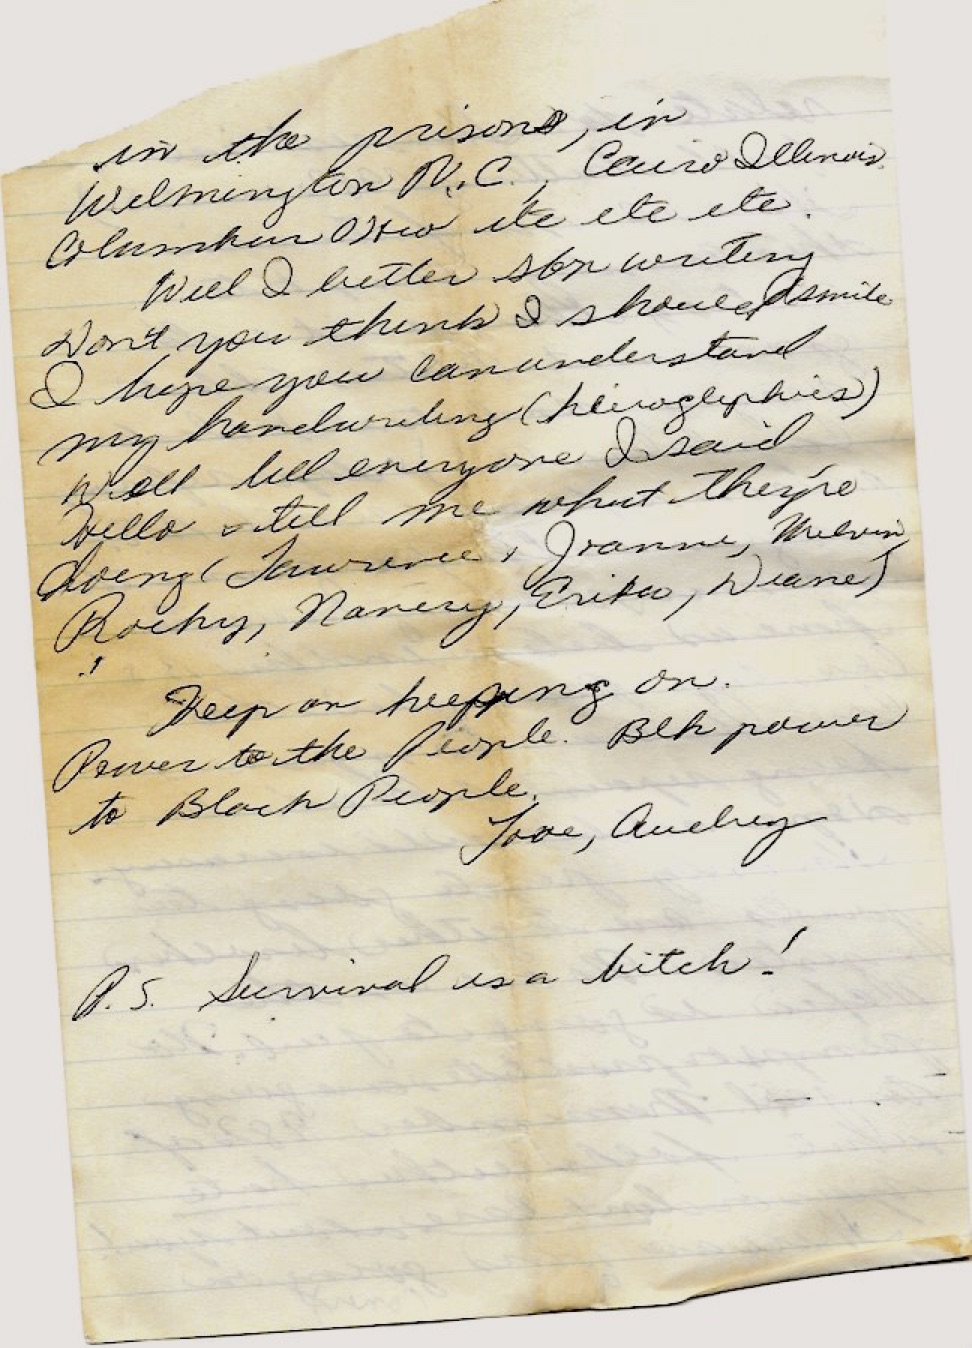 in the prisons, in
Wilmington N.C., Cairo Illinois,
Columbus Ohio etc etc etc.
Well I better stop writing
Don't you think I should smile
I hope you can understand
my handwriting (heiroglyphics)
Well tell everyone I said
Hello & tell me what they're
doing (Lawrence, Joanne, Melvin,
Rocky, Nancy, Erika, Diane)
!
Keep on keepping on.
Power to the People. Blk power
to Black People.
Love, Audrey
P.S. Survival is a bitch!